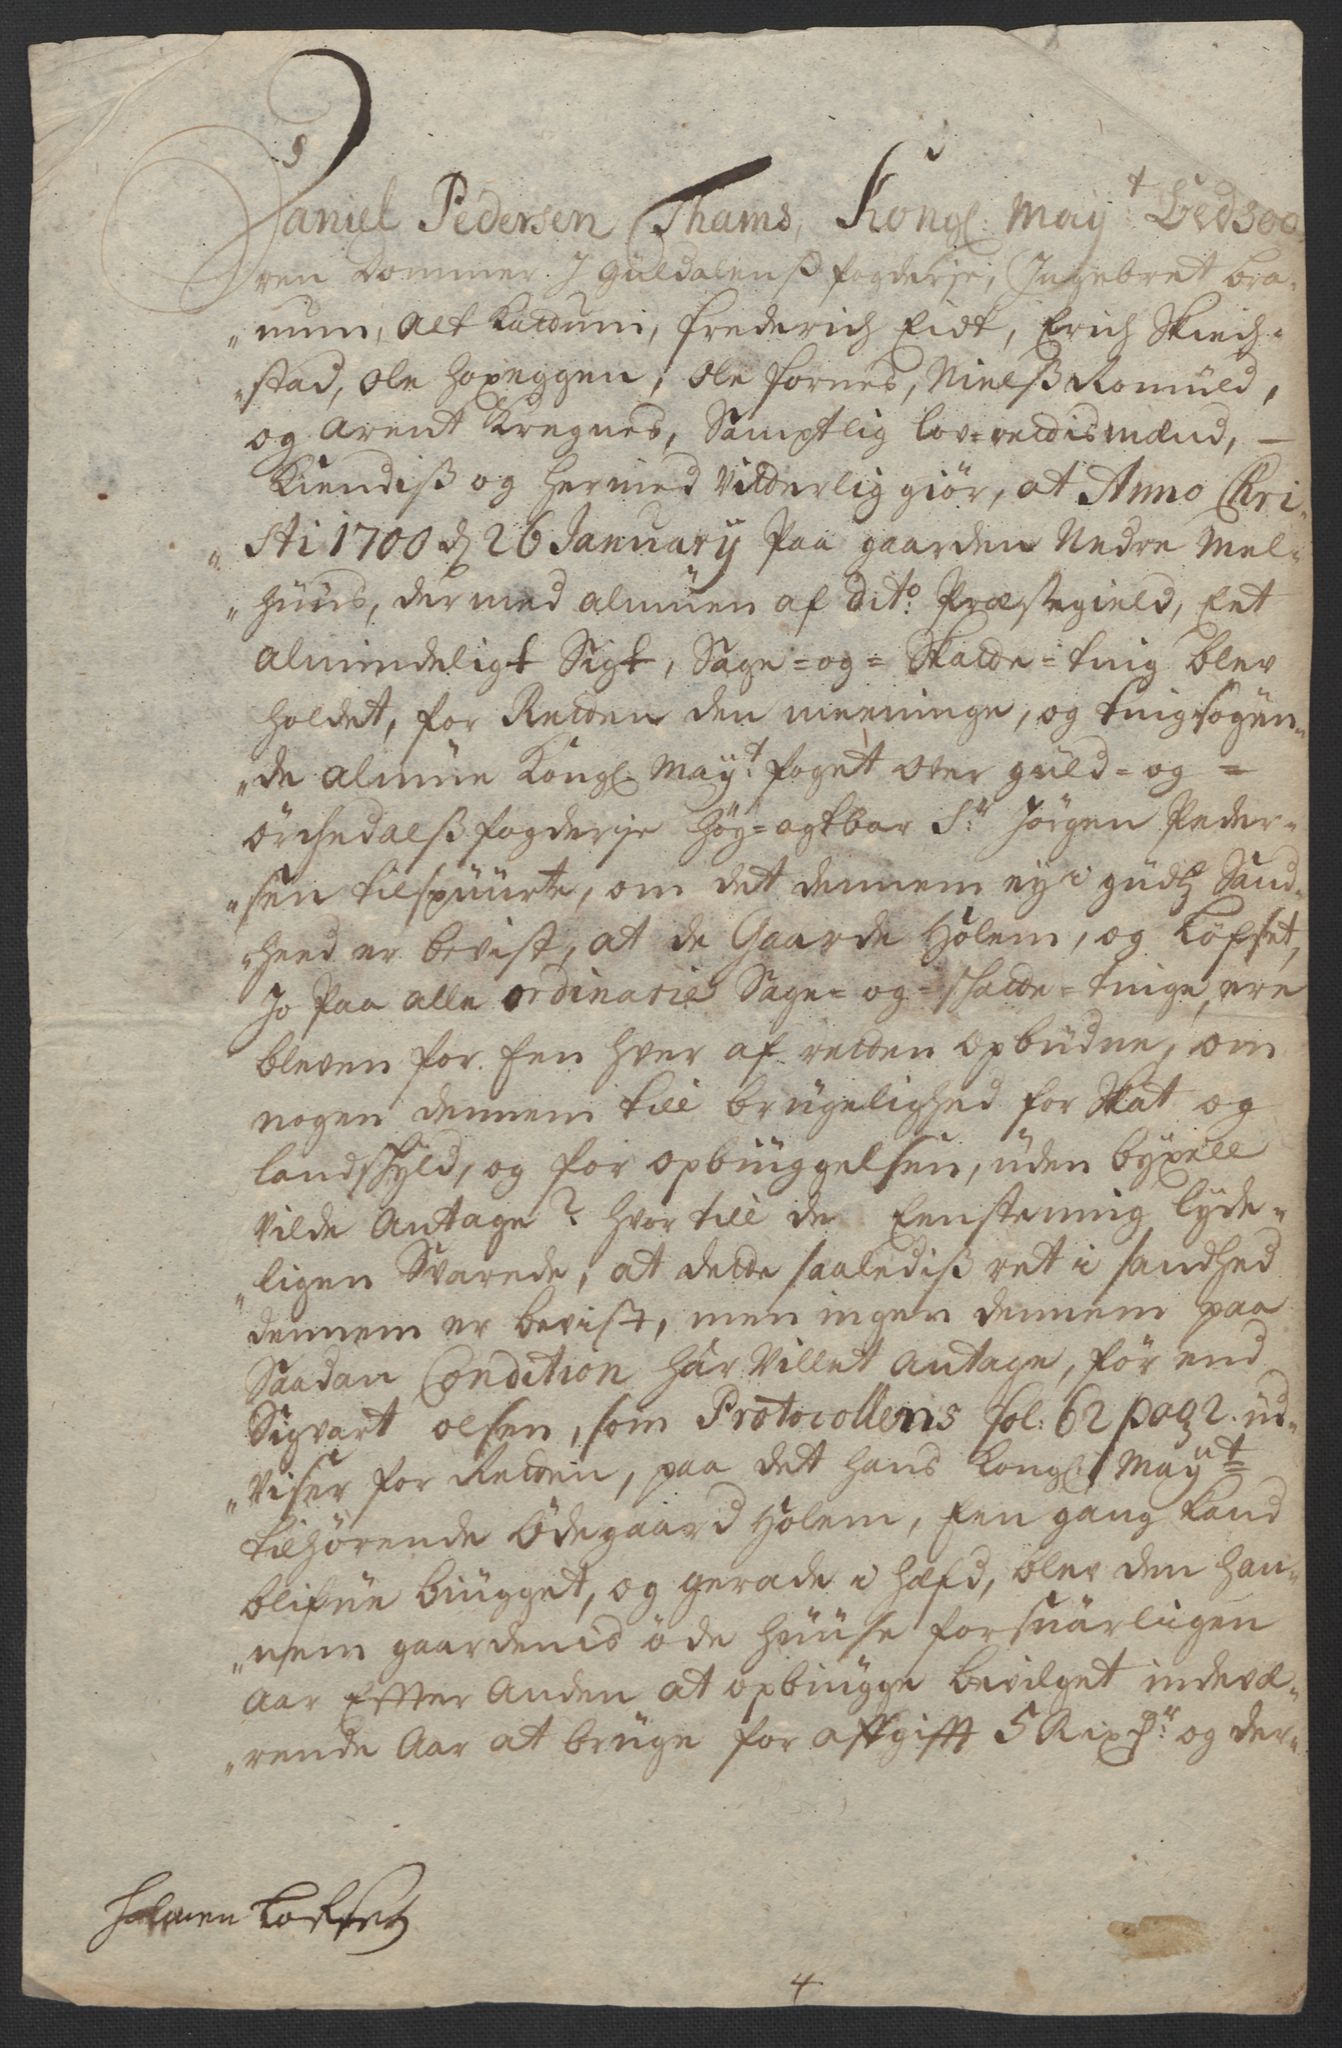 Daniel Pedersen Thams, Kongl. Mayt. Eedsoo
ren Dommer J Guldalenß fogderje, Ingebret bra-
"num, Alf Kaldum, frederich Eidt, Erich Skiech-
"stad, Ole hoxeggen, Ole fornes, Nielß Romuld,
og Arent Kregnes, Samptlig lov-rettismænd,
Kiendiß og hermed Vitterlig giør, at Anno Chri-
"sti 1700 d 26 January Paa gaarden Nedre Mel-
"huus, der med almuen af dito. Præstegield, Eet
almindeligt Sigt, Sage=og=Skatte=ting blev
holdet, for Retten den meeninge, og tingsøgen-
"de almue Kongl. Mayt. foget over guld=og=
Ørchedalß fogderje Høy=agtbar Sr. Jørgen Peder-
"sen tilspuurte, om det dennem ey i gudß Sand-
"heed er bevist, at de Gaarde Holem, og Løfset,
Jo Paa alle ordinarie Sage=og=skatte=tinge, ere
bleven for Een hver af retten opbudne, om
nogen dennem till brugelighed for Skat og
landskyld, og for opbuggelsen, uden byxell
vilde Antage? hvor till de Eenstemig lyde-
"ligen Svarede, at dette saalediß ret i sandhed
dennem er bevist, men ingen dennem paa
Saadan Condition har Villet Antage, før end
Sigvart olsen, som Protocollens fol: 62 pag 2. ud-
"viser for Retten, paa det hans Kongl. Mayt
tilhørende Ødegaard Holem, Een gang kand
blifue bugget, og gerade i hæfd, blev den han-
"nem gaardenis øde huuse forsuarligen
Aar Effter Anden at opbugge bevilget indevæ-
"rende Aar at bruge for affgifft 5 Rixdr. og der-
Holmen Løfset
4